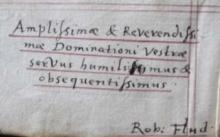 Ampliſsimæ & Reverendiſsi
mæ Dominationi Vestræ
servus humiliſsimus &
obsequentiſsimus.
Rob: Flud